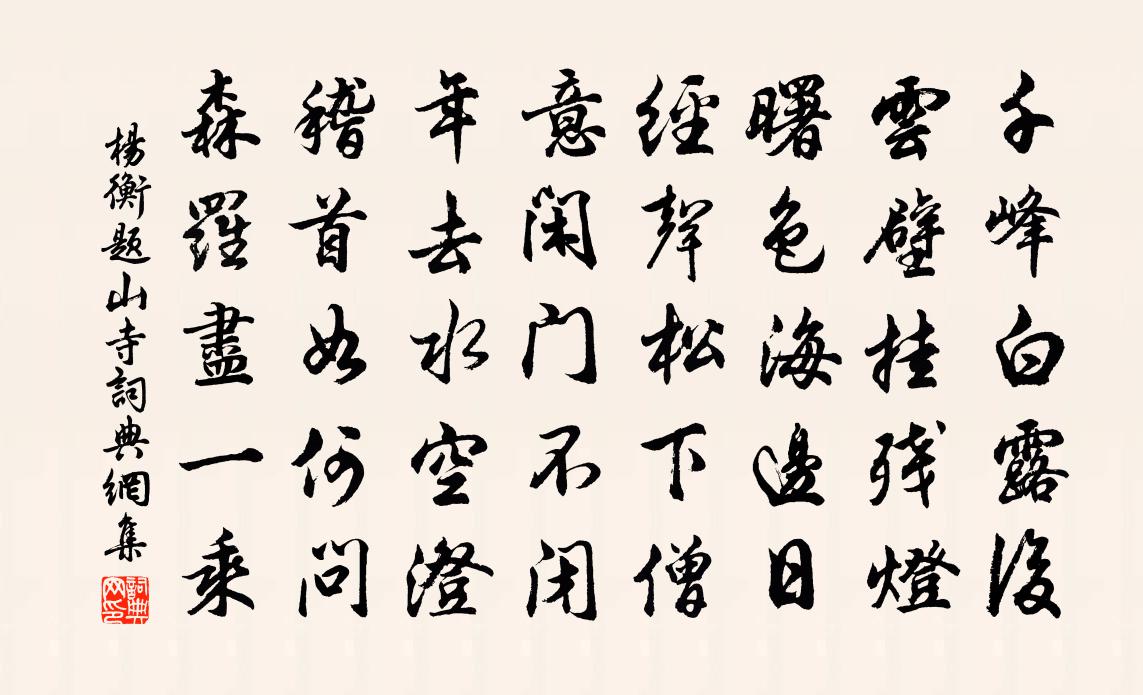 千峰白露後
雲壁挂残燈
曙色海邊日
經聲松下僧
意闲门不闭
年去水空澄
稽首如何問
森羅盡一乘
楊衡题山寺詞典網集
詞典网印